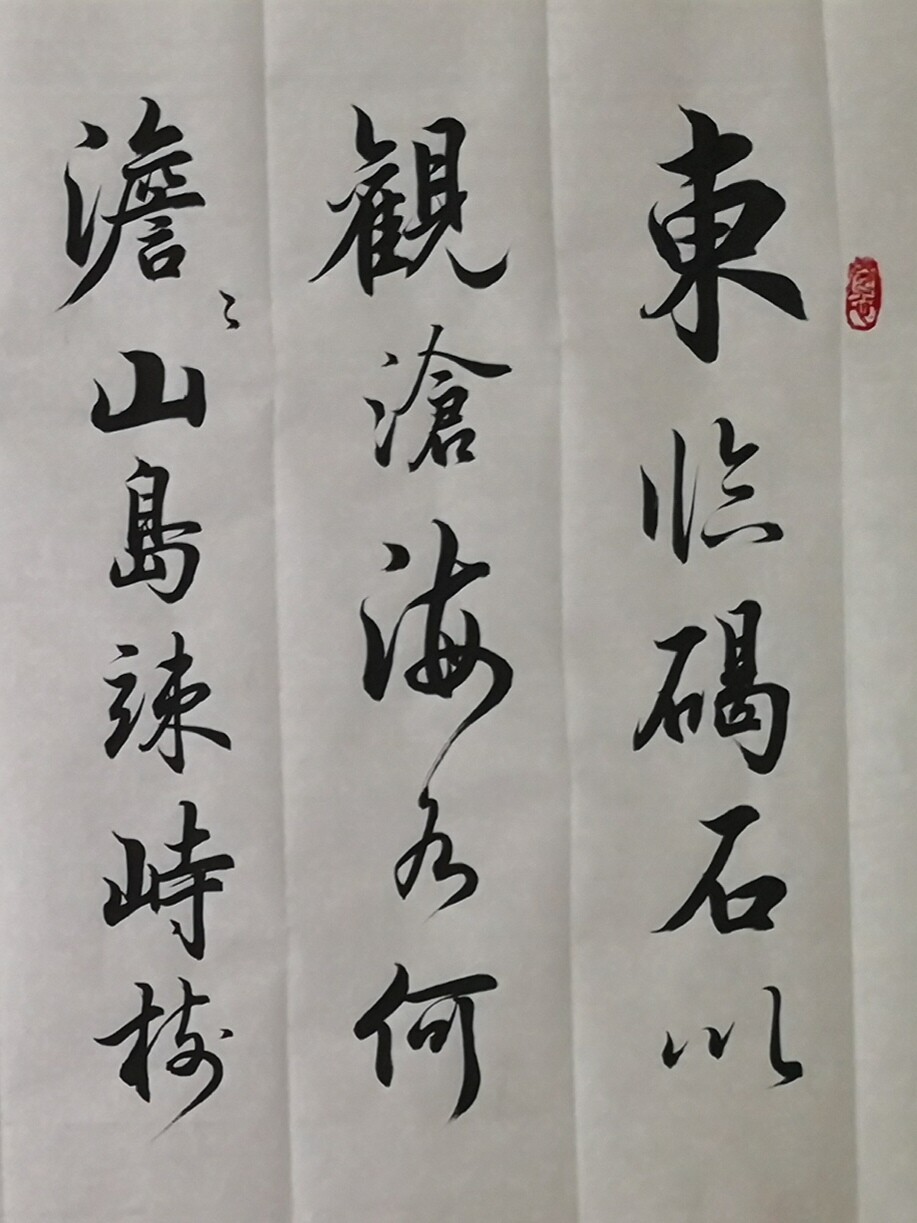 東临碣石以
觀滄海水何
澹〻山島竦峙树